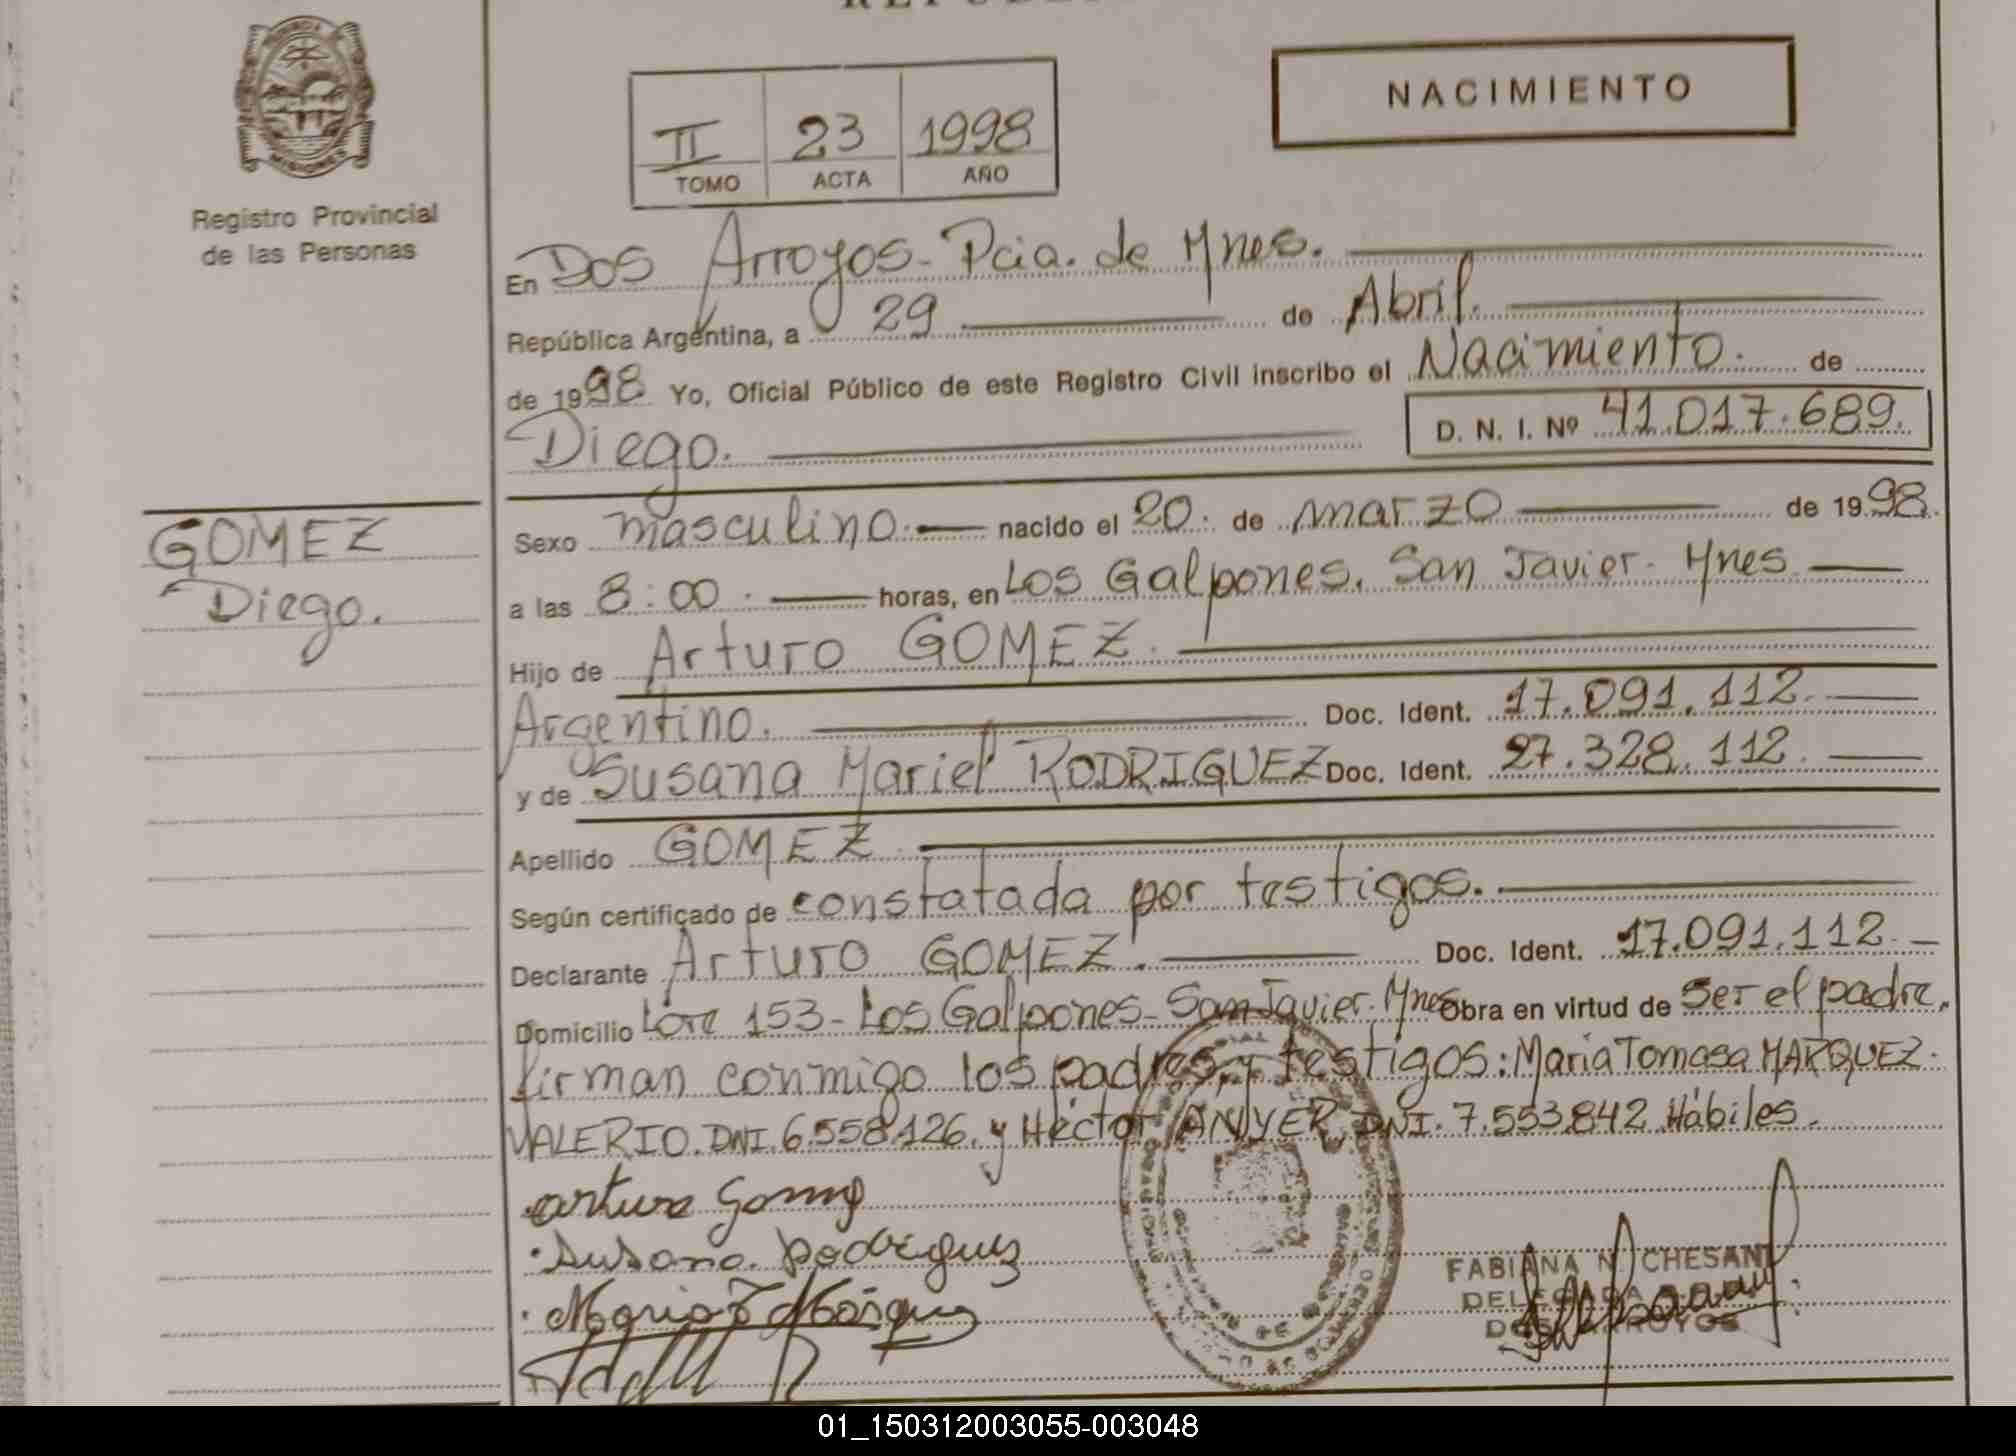 PROVINCIA
MISIONES
Registro Provincial
de las Personas
II 23 1998
TOMO ACTA AÑO
NACIMIENTO
En Dos Arroyos - Pcia. de Mnes.
República Argentina, a 29 de Abril.
de 1998 Yo, Oficial Público de este Registro Civil inscribo el Nacimiento. de
Diego. D. N. I. Nº 41.017.689.
GOMEZ
Diego.
Sexo masculino. nacido el 20. de marzo de 1998.
a las 8:00. horas, en Los Galpones. San Javier - Mnes
Hijo de Arturo GOMEZ.
Argentino. Doc. Ident. 17.091.112.
y de Susana Mariel RODRIGUEZ Doc. Ident. 27.328.112.
Apellido GOMEZ.
Según certificado de constatada por testigos.
Declarante Arturo GOMEZ. Doc. Ident. 17.091.112.
Domicilio Lote 153 - Los Galpones - San Javier - Mnes Obra en virtud de Ser el padre.
firman conmigo los padres y testigos: Maria Tomasa MARQUEZ.
VALERIO. DNI. 6.558.126. y Héctor DNI. 7.553.842 Hábiles.
Arturo Gomez
Susana Rodriguez
Maria T Marquez
FABIANA N. CHESANI
DELEGADA
DOS ARROYOS
01_150312003055-003048